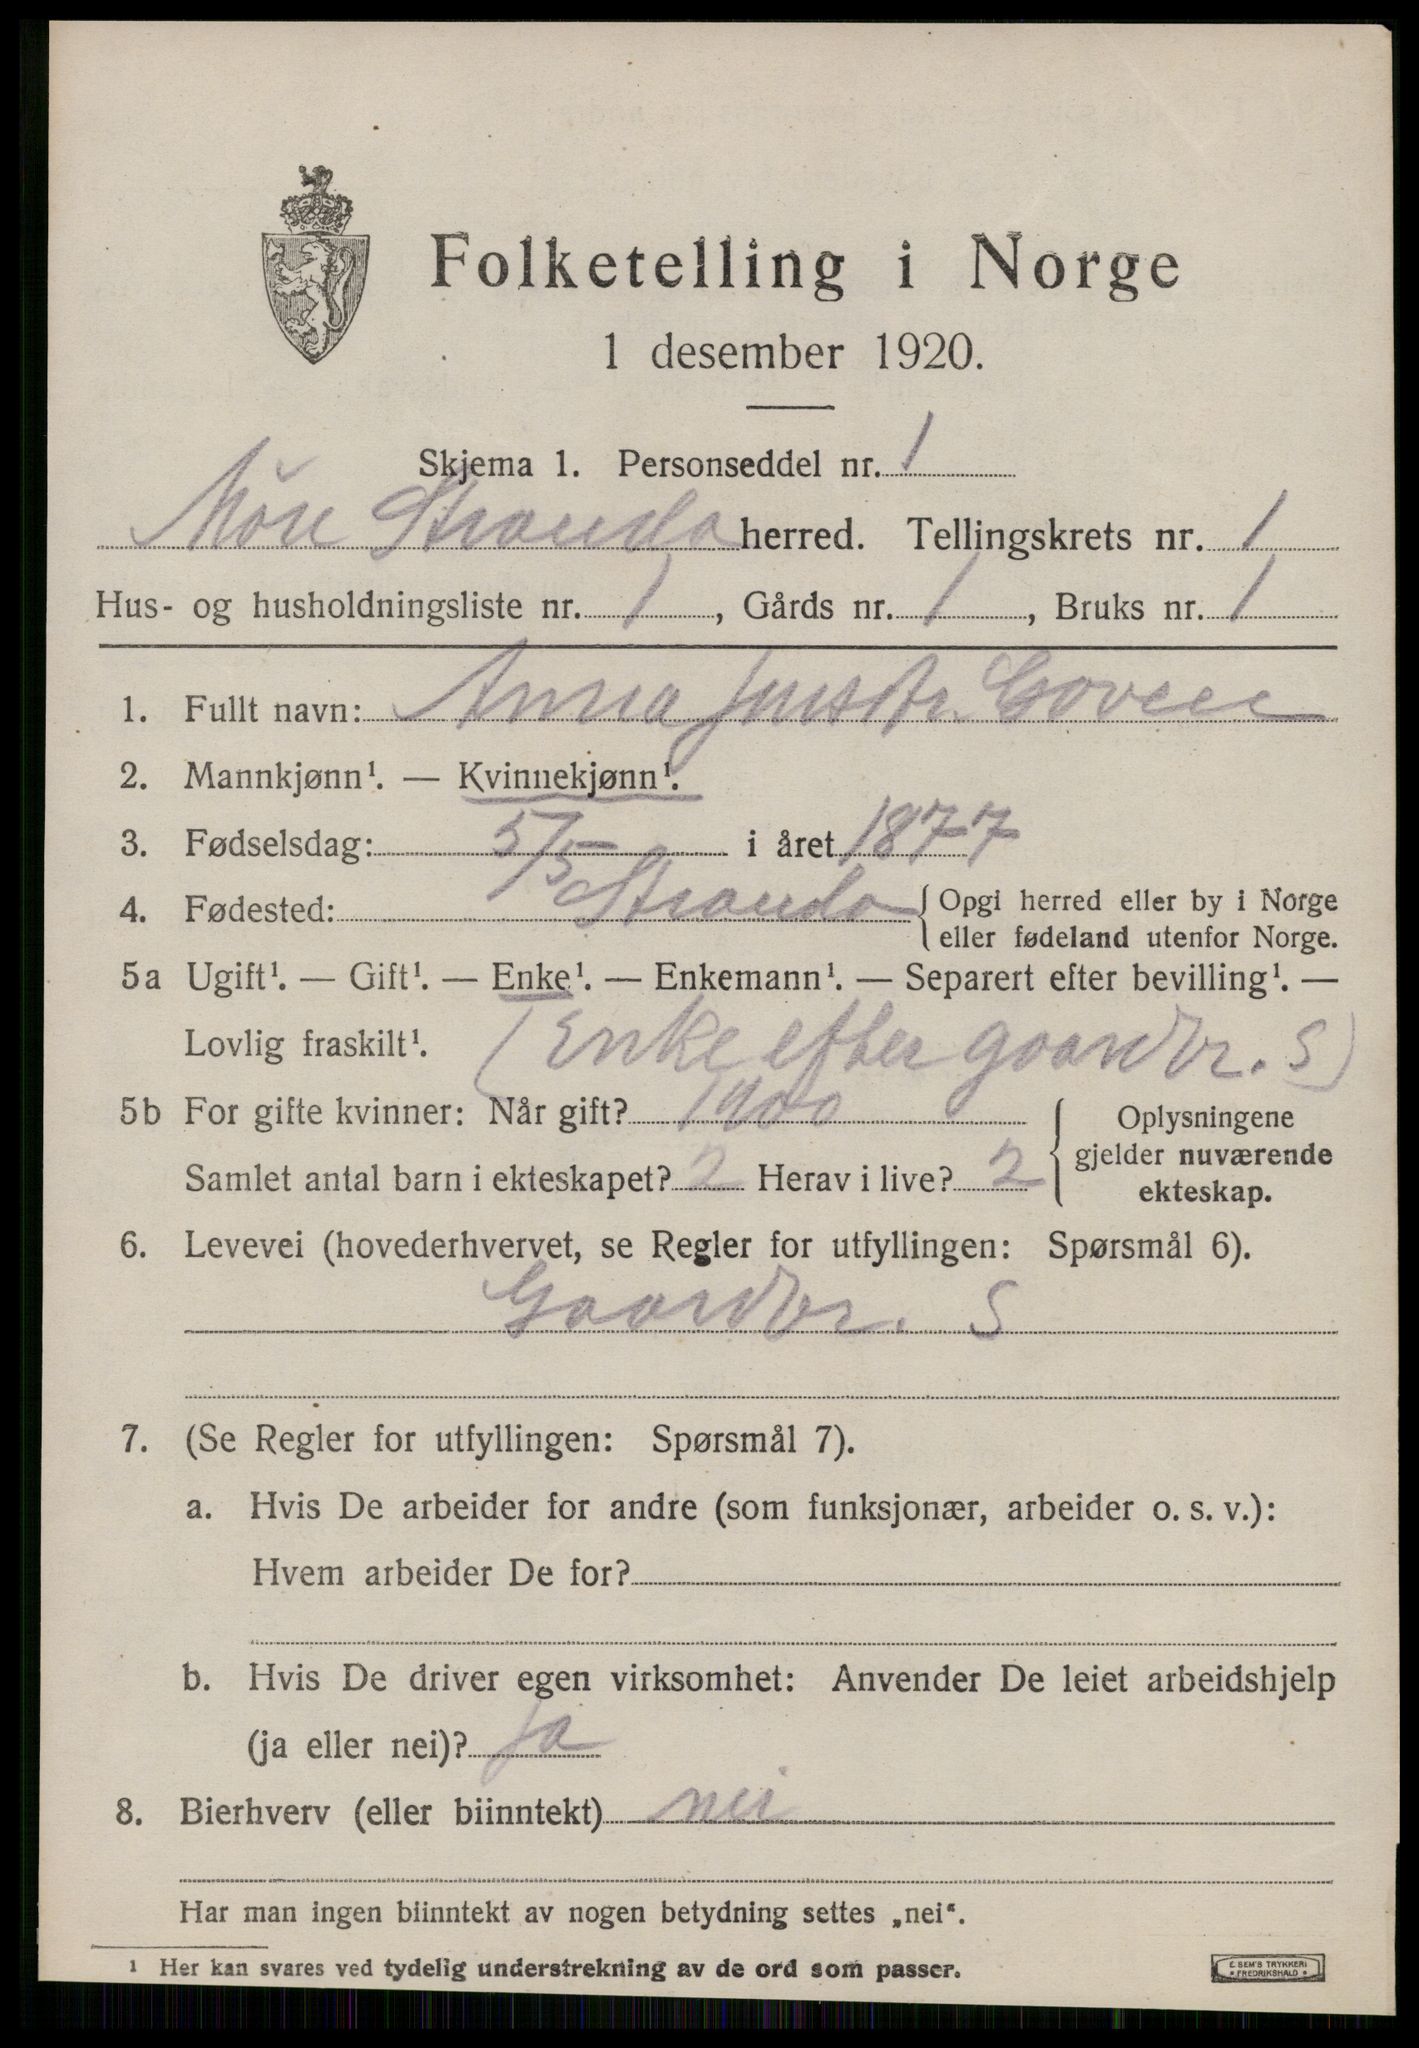 Folketelling i Norge
1 desember 1920.
Skjema 1. Personseddel nr. 1
Møre Stranda herred. Tellingskrets nr. 1
Hus- og husholdningsliste nr. 1, Gårds nr. 1, Bruks nr. 1
1. Fullt navn: Anna
2. Mannkjønn¹. — Kvinnekjønn¹.
3. Fødselsdag: 5/5 i året 1877
4. Fødested: Stranda { Opgi herred eller by i Norge
eller fødeland utenfor Norge.
5a Ugift¹. — Gift¹. — Enke¹. — Enkemann¹. — Separert efter bevilling¹. —
Lovlig fraskilt¹. (Enke efter gaardbr. S)
5b For gifte kvinner: Når gift? 1900
Samlet antal barn i ekteskapet? 2 Herav i live? 2
Oplysningene
gjelder nuværende
ekteskap.
6. Levevei (hovederhvervet, se Regler for utfyllingen: Spørsmål 6).
Gaardbr. S
7. (Se Regler for utfyllingen: Spørsmål 7).
a. Hvis De arbeider for andre (som funksjonær, arbeider o. s. v.):
Hvem arbeider De for?
b. Hvis De driver egen virksomhet: Anvender De leiet arbeidshjelp
(ja eller nei)? ja
8. Bierhverv (eller biinntekt) nei
Har man ingen biinntekt av nogen betydning settes „nei“.
¹ Her kan svares ved tydelig understrekning av de ord som passer.
E. SEM'S TRYKKERI
FREDRIKSHALD